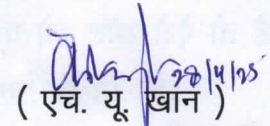 28/4/25
( एच. यू. खान )